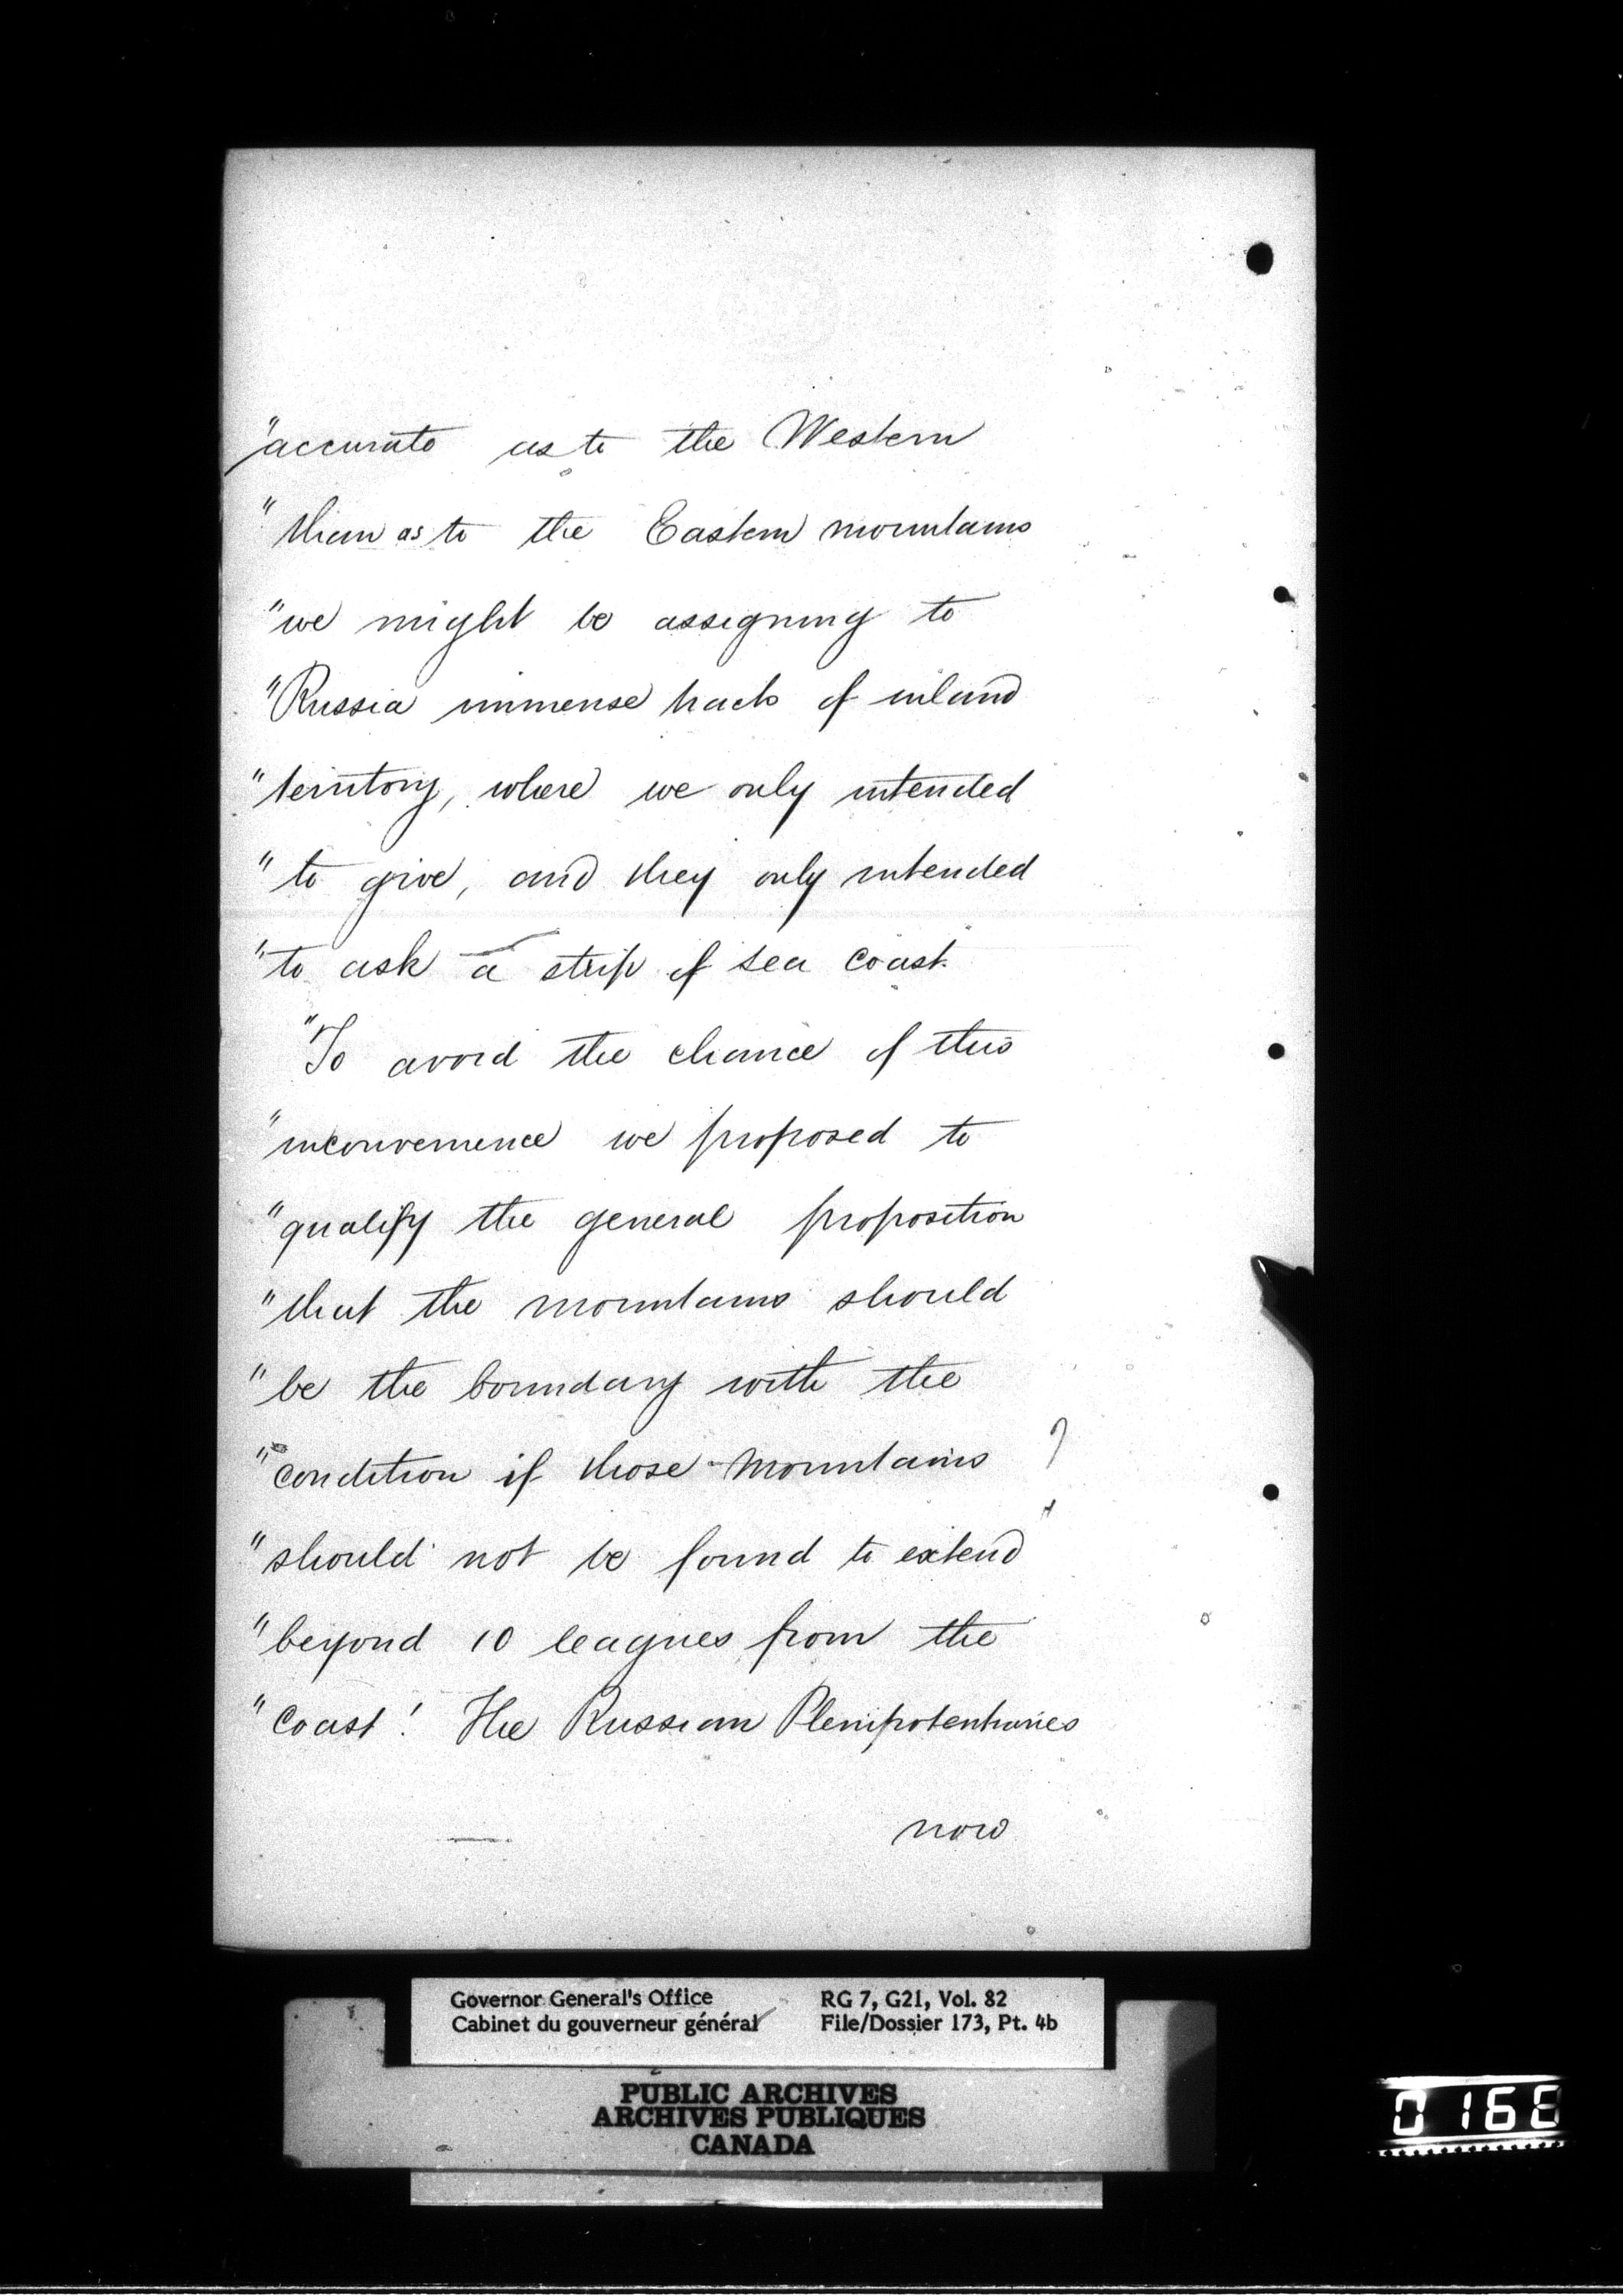 "accurate as to the Western
"than as to the Eastern mountains
"we might be assigning to
"Russia immense tracts of inland
"territory, where we only intended
"to give, and they only intended
"to ask a strip of sea coast.
"To avoid the chance of this
"inconvenience we proposed to
"qualify the general proposition
"that the mountains should
"be the boundary with the
"condition if those mountains ?
"should not be found to extend
"beyond 10 leagues from the
"coast! The Russian Plenipotentiaries
now
Governor General's Office
Cabinet du gouverneur général
RG 7, G21, Vol. 82
File/Dossier 173, Pt. 4b
PUBLIC ARCHIVES
ARCHIVES PUBLIQUES
CANADA